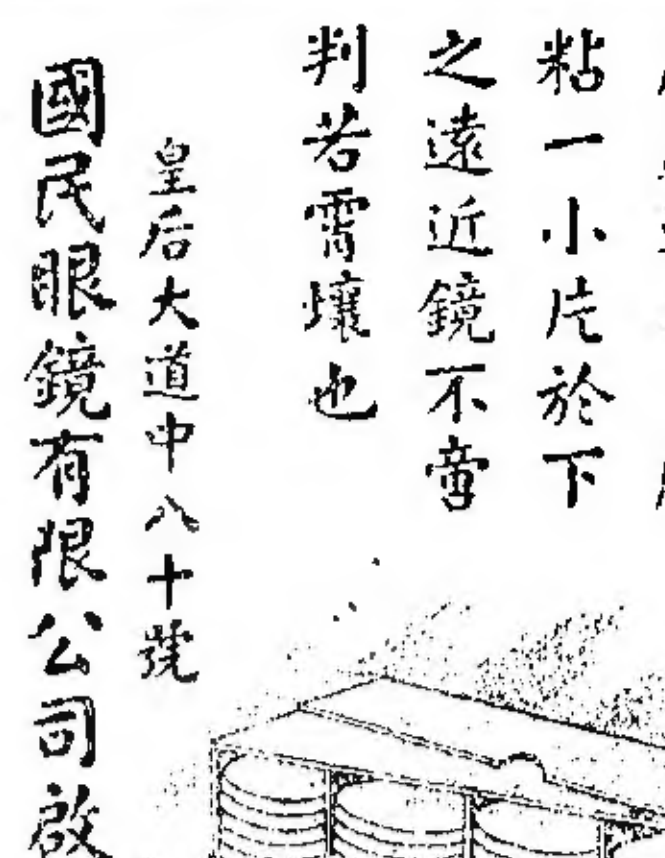 粘一小片於下
之遠近鏡不啻
判若霄壤也
皇后大道中八十號
國民眼鏡有限公司啟